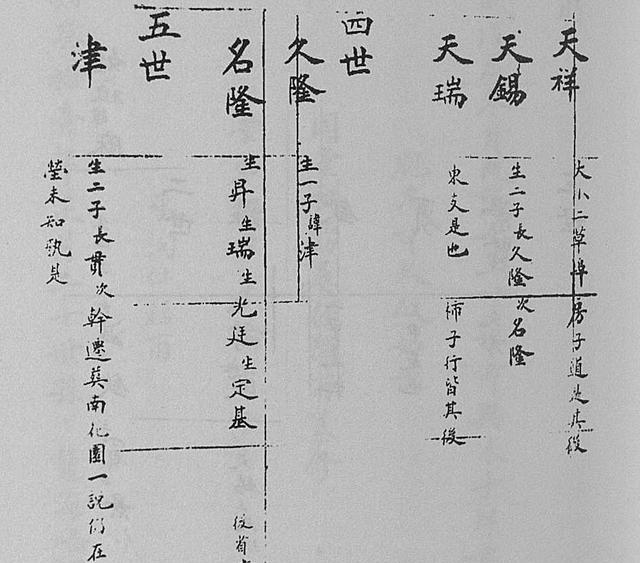 天祥
大小二草埠房子道是其後
天錫
生二子長久隆次名隆
天瑞
東支是也柿子行皆其後
四世
久隆
生一子諱津
名隆
生昇生瑞生光廷生定基
後省
五世
津
生二子長貫次幹遷葬南化園一說仍在
塋未知孰是